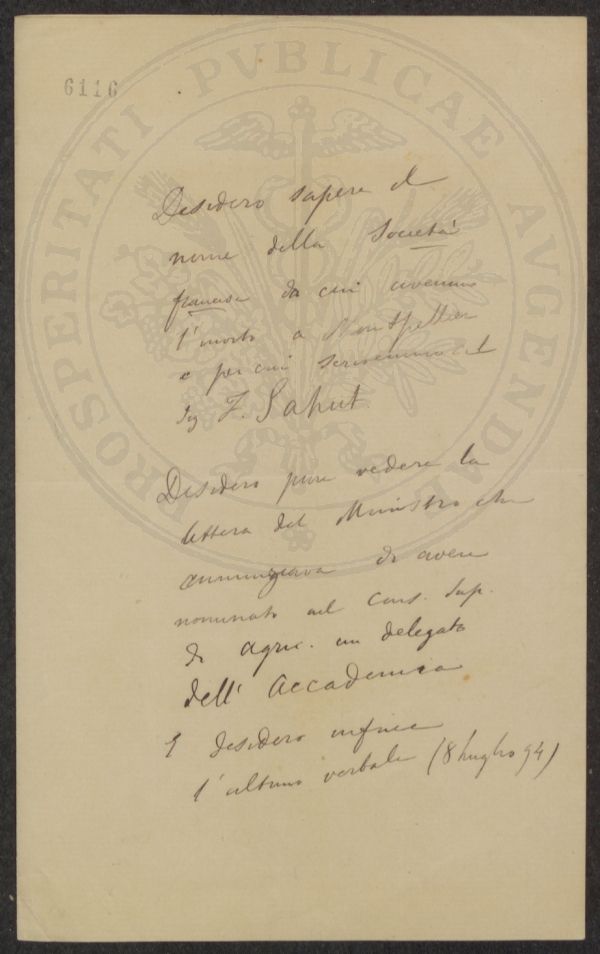 6116
PROSPERITATI PVBLICAE AVGENDAE
Desidero sapere il
nome della Società
francese da cui avemmo
l'invito a Montpellier
e per cui scrivemmo al
Sig F. Sahut
Desidero pure vedere la
lettera del Ministro che
annunziava di avere
nominato nel Cons. Sup.
di Agric. un delegato
dell' Accademia
E desidero infine
l'ultimo verbale (8 luglio 94)